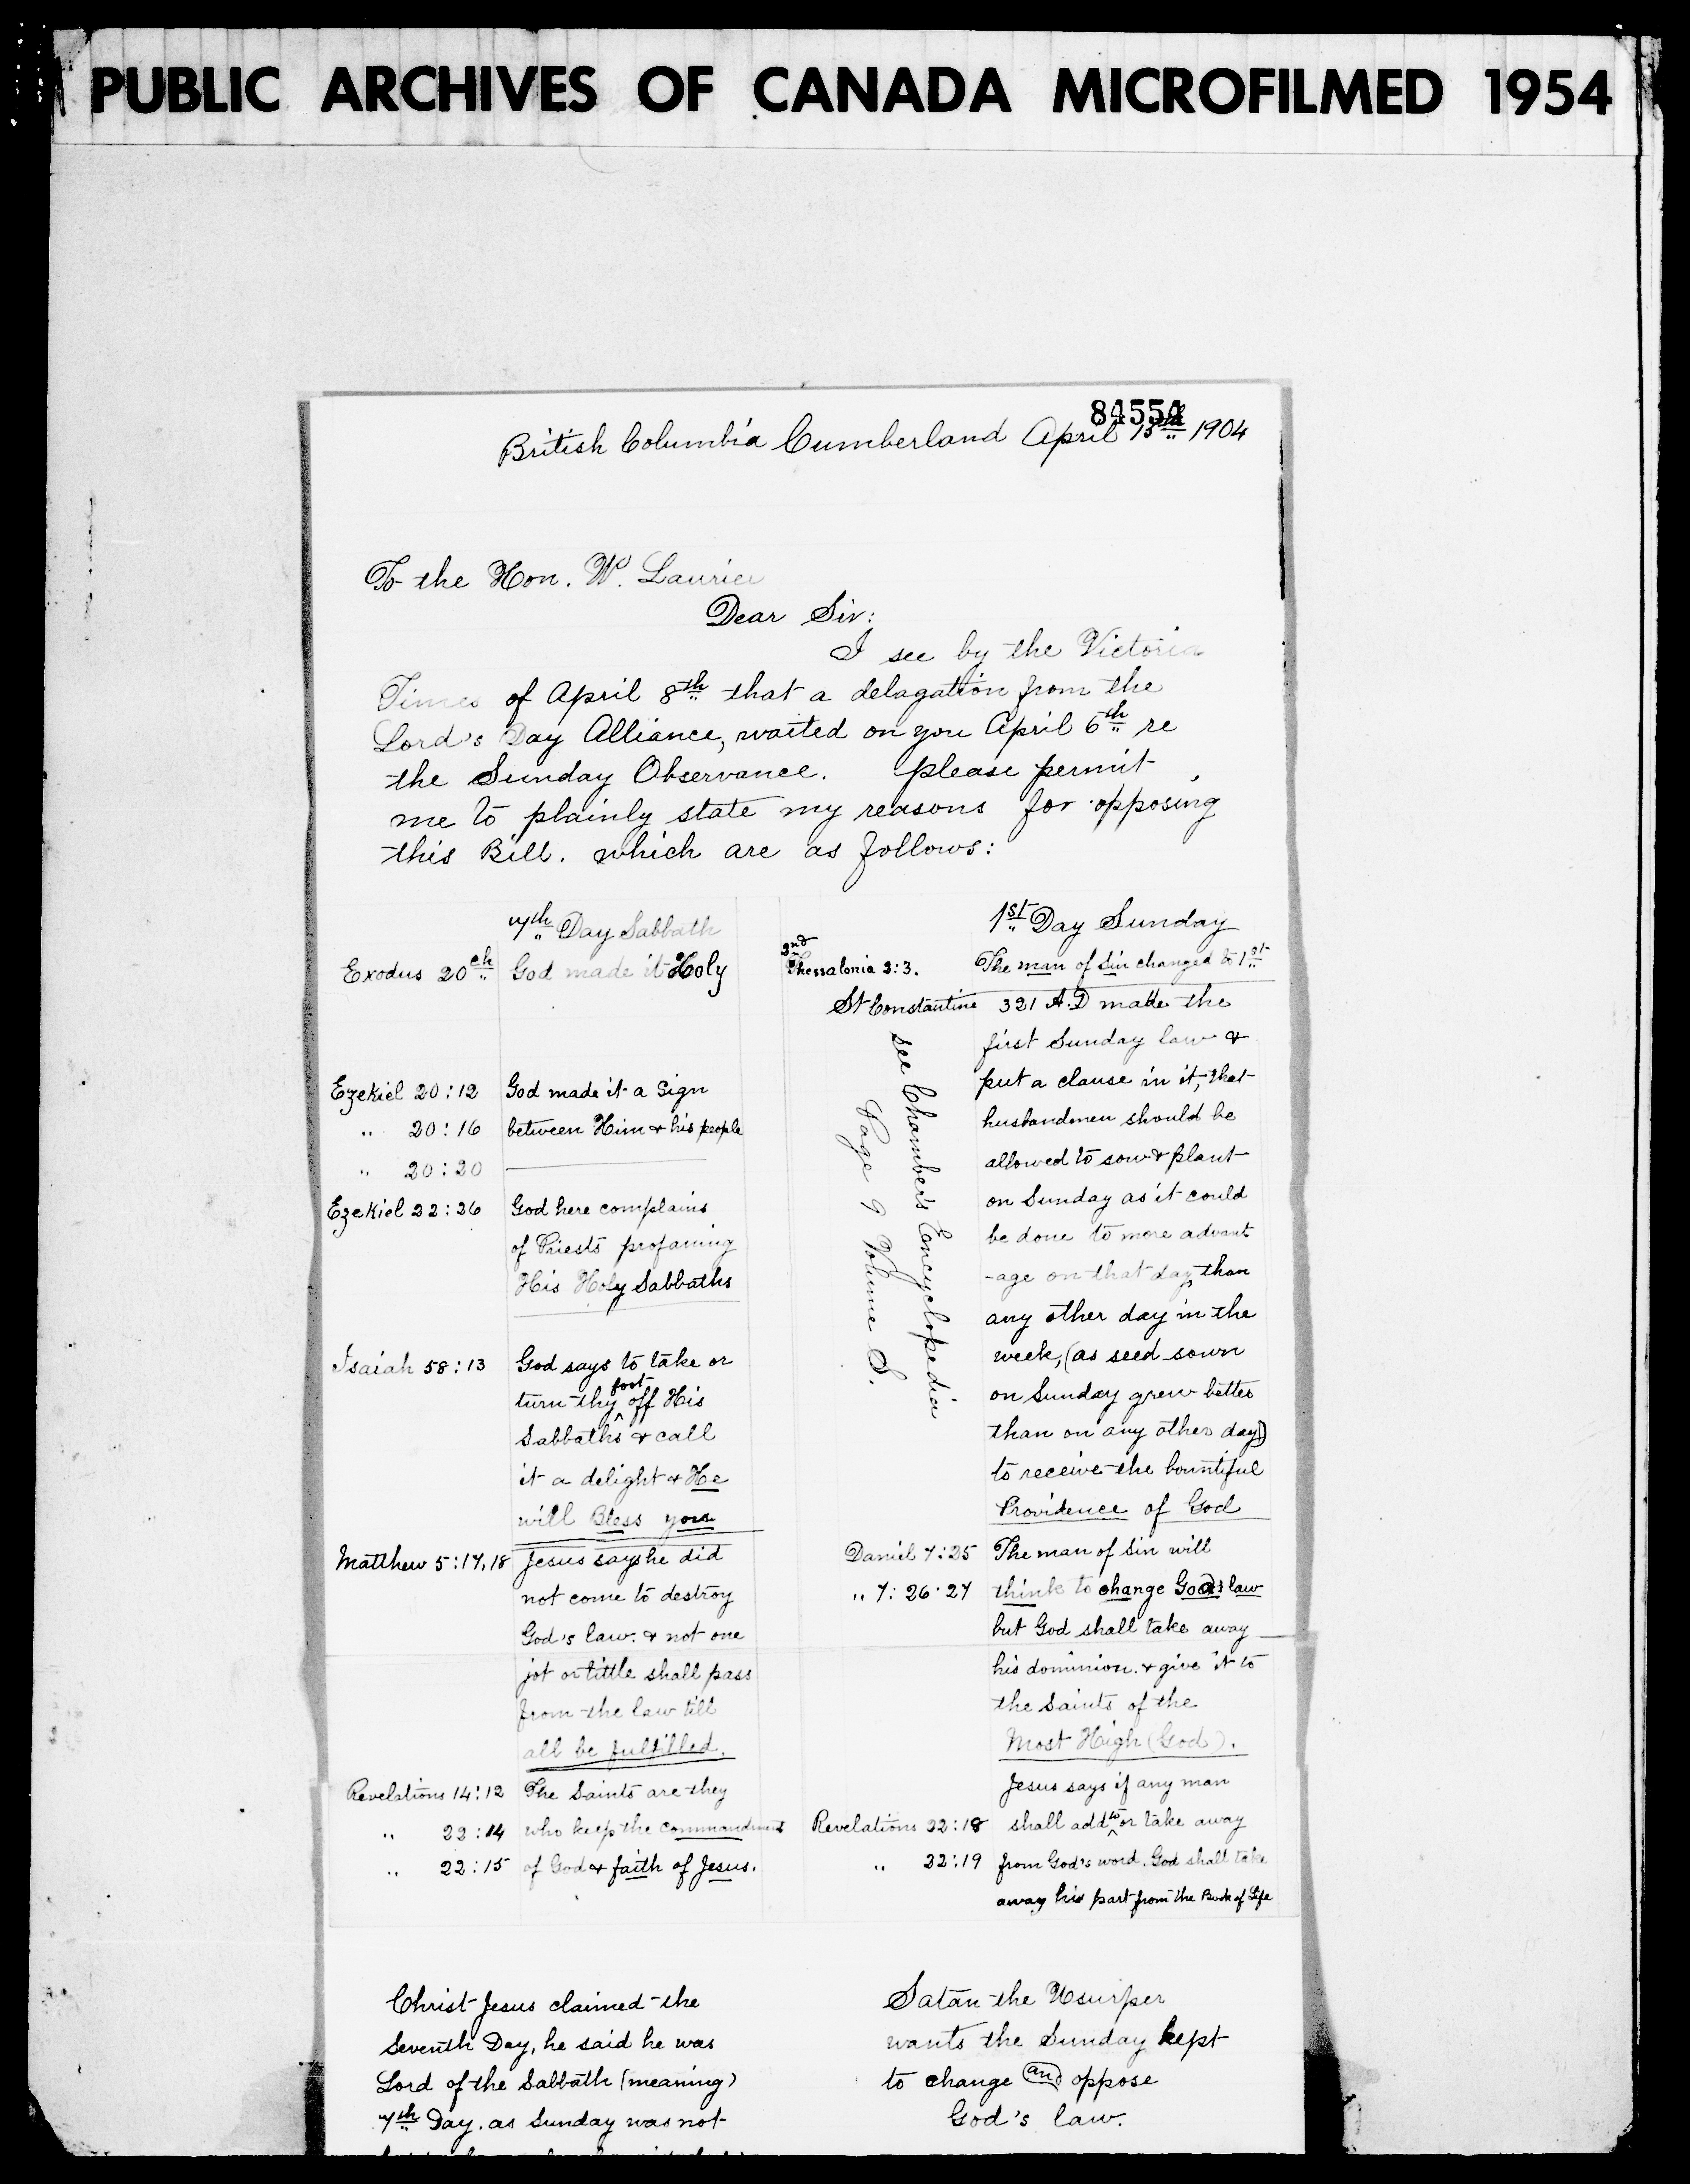 PUBLIC ARCHIVES OF CANADA MICROFILMED 1954
84554
British Columbia Cumberland April 13th 1904
To the Hon. W. Laurier
Dear Sir:
I see by the Victoria
Times of April 8th that a delagation from the
Lord's Day Alliance, waited on you April 6th re
the Sunday Observance. please permit
me to plainly state my reasons for opposing
this Bill. which are as follows:
7th Day Sabbath
Exodus 20ch God made it Holy
Ezekiel 20:12 God made it a Sign
" 20:16 between Him & his people
" 20:20
Ezekiel 22:26 God here complains
of Priests profaning
His Holy Sabbaths
Isaiah 58:13 God says to take or
turn thy foot off His
Sabbaths & call
it a delight & He
will Bless you
Matthew 5:17,18 Jesus says he did
not come to destroy
God's law. & not one
jot or tittle shall pass
from the law till
all be fulfilled.
Revelations 14:12 The Saints are they
" 22:14 who keep the commandments
" 22:15 of God & faith of Jesus.
1st Day Sunday
2nd Thessalonia 2:3. The man of Sin changed to 1st
St Constantine 321 A.D made the
first Sunday law &
put a clause in it, that
husbandmen should be
allowed to sow & plant
on Sunday as it could
be done to more advant
-age on that day than
any other day in the
week, (as seed sown
on Sunday grew better
than on any other day)
to receive the bountiful
Providence of God
see Chamber's Encyclopedia
Page 9 Volume S.
Daniel 7:25 The man of Sin will
" 7:26.27 think to change God's law
but God shall take away
his dominion. & give it to
the Saints of the
Most High (God).
Jesus says if any man
Revelations 22:18 shall add to or take away
" 22:19 from God's word. God shall take
away his part from the Book of Life
Christ Jesus claimed the
Seventh Day, he said he was
Lord of the Sabbath (meaning)
7th Day. as Sunday was not
Satan the Usurper
wants the Sunday kept
to change and oppose
God's law.